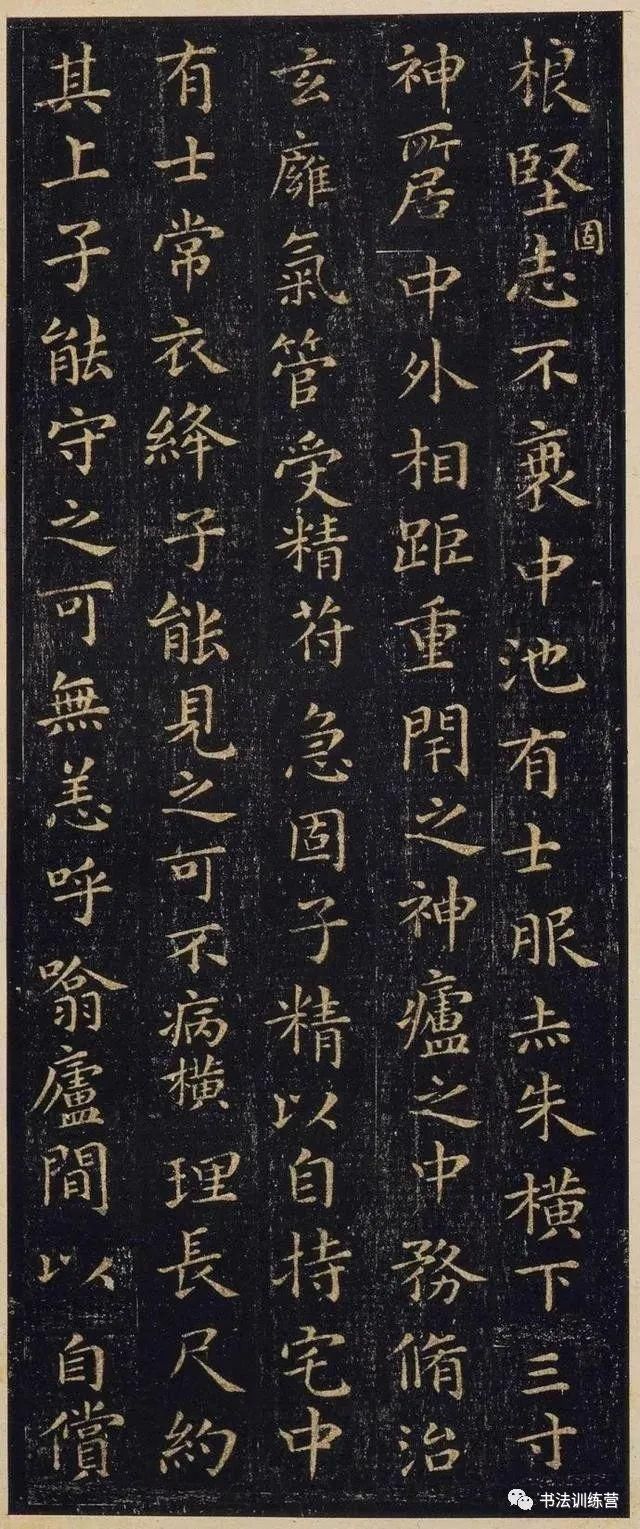 根堅固志不衰中池有士服赤朱橫下三寸
神所居中外相距重閇之神廬之中務脩治
玄廱氣管受精符急固子精以自持宅中
有士常衣絳子能見之可不病橫理長尺約
其上子能守之可無恙呼噏廬間以自償
书法训练营